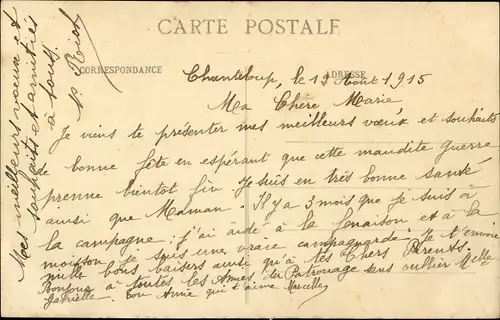 CARTE POSTALE
CORRESPONDANCE
ADRESSE
Chanteloup, le 12 Août 1915
Ma Chère Marie
Je viens te présenter mes meilleurs vœux et souhaits
de bonne fête en espérant que cette maudite guerre
prenne bientôt fin. Je suis en très bonne santé
ainsi que Maman. Il y a 3 mois que je suis à
la campagne, j'ai aidé à la fenaison et à la
moisson, je suis une vraie campagnarde. Je t'envoie
mille bons baisers ainsi qu'à tes Chers Parents.
Bonjour à toutes les Amies du Patronage sans oublier Melle
Gabrielle. Ton Amie qui t'aime Marcelle
Mes meilleurs vœux et
souhaits et amitiés
à tous.